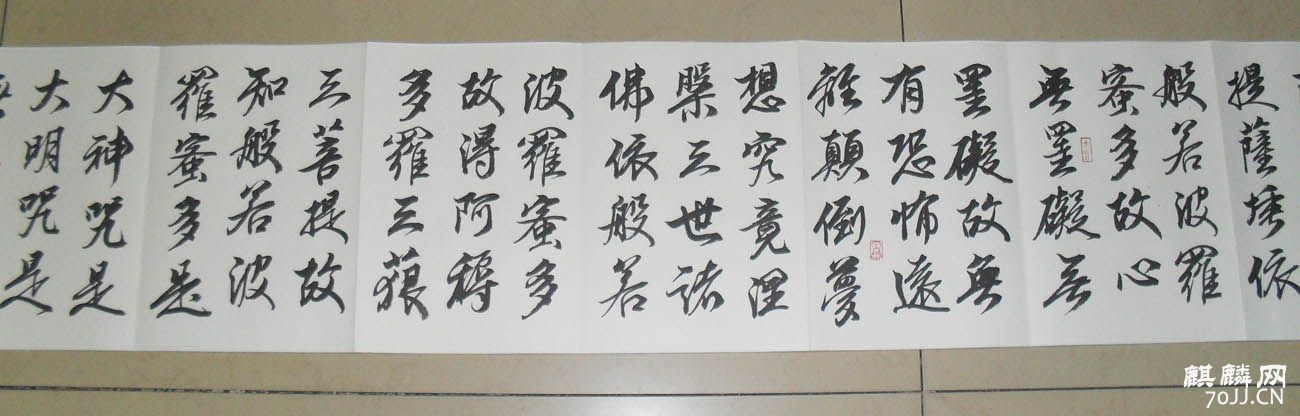 提薩埵依
般若波羅
蜜多故心
無罣礙無
罣礙故無
有恐怖遠
離顛倒夢
想究竟涅
槃三世諸
佛依般若
波羅蜜多
故得阿耨
多羅三藐
三菩提故
知般若波
羅蜜多是
大神咒是
大明咒是
麒麟网
70JJ.CN